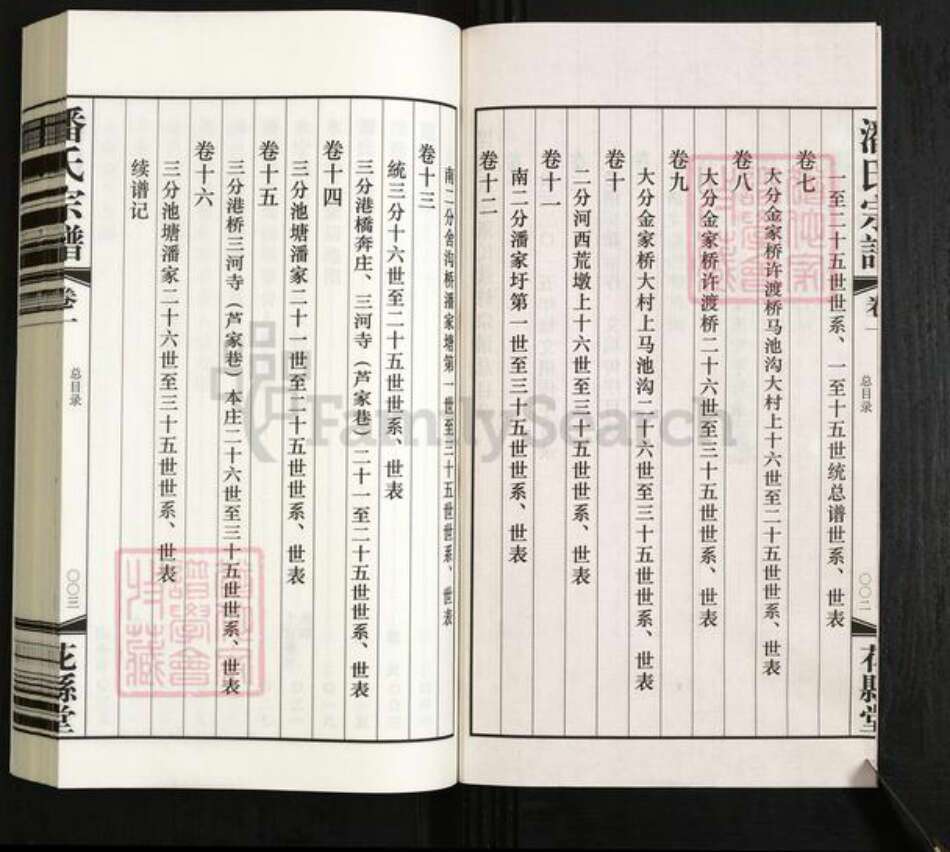 潘氏宗譜
卷一
总目录
〇〇二
花縣堂
一至二十五世世系、一至十五世统总谱世系、世表
卷七
大分金家桥许渡桥马池沟大村上十六世至二十五世世系、世表
卷八
大分金家桥许渡桥二十六世至三十五世世系、世表
卷九
大分金家桥大村上马池沟二十六世至三十五世世系、世表
卷十
二分河西荒墩上十六世至三十五世世系、世表
卷十一
南二分潘家圩第一世至三十五世世系、世表
卷十二
南二分舍沟桥潘家塘第一世至三十五世世系、世表
卷十三
統三分十六世至二十五世世系、世表
三分港橋奔庄、三河寺（芦家巷）二十一至二十五世世系、世表
卷十四
三分池塘潘家二十一世至二十五世世系、世表
卷十五
三分港桥三河寺（芦家巷）本庄二十六世至三十五世世系、世表
卷十六
三分池塘潘家二十六世至三十五世世系、世表
续谱记
潘氏宗譜
卷一
总目录
〇〇三
花縣堂
FamilySearch